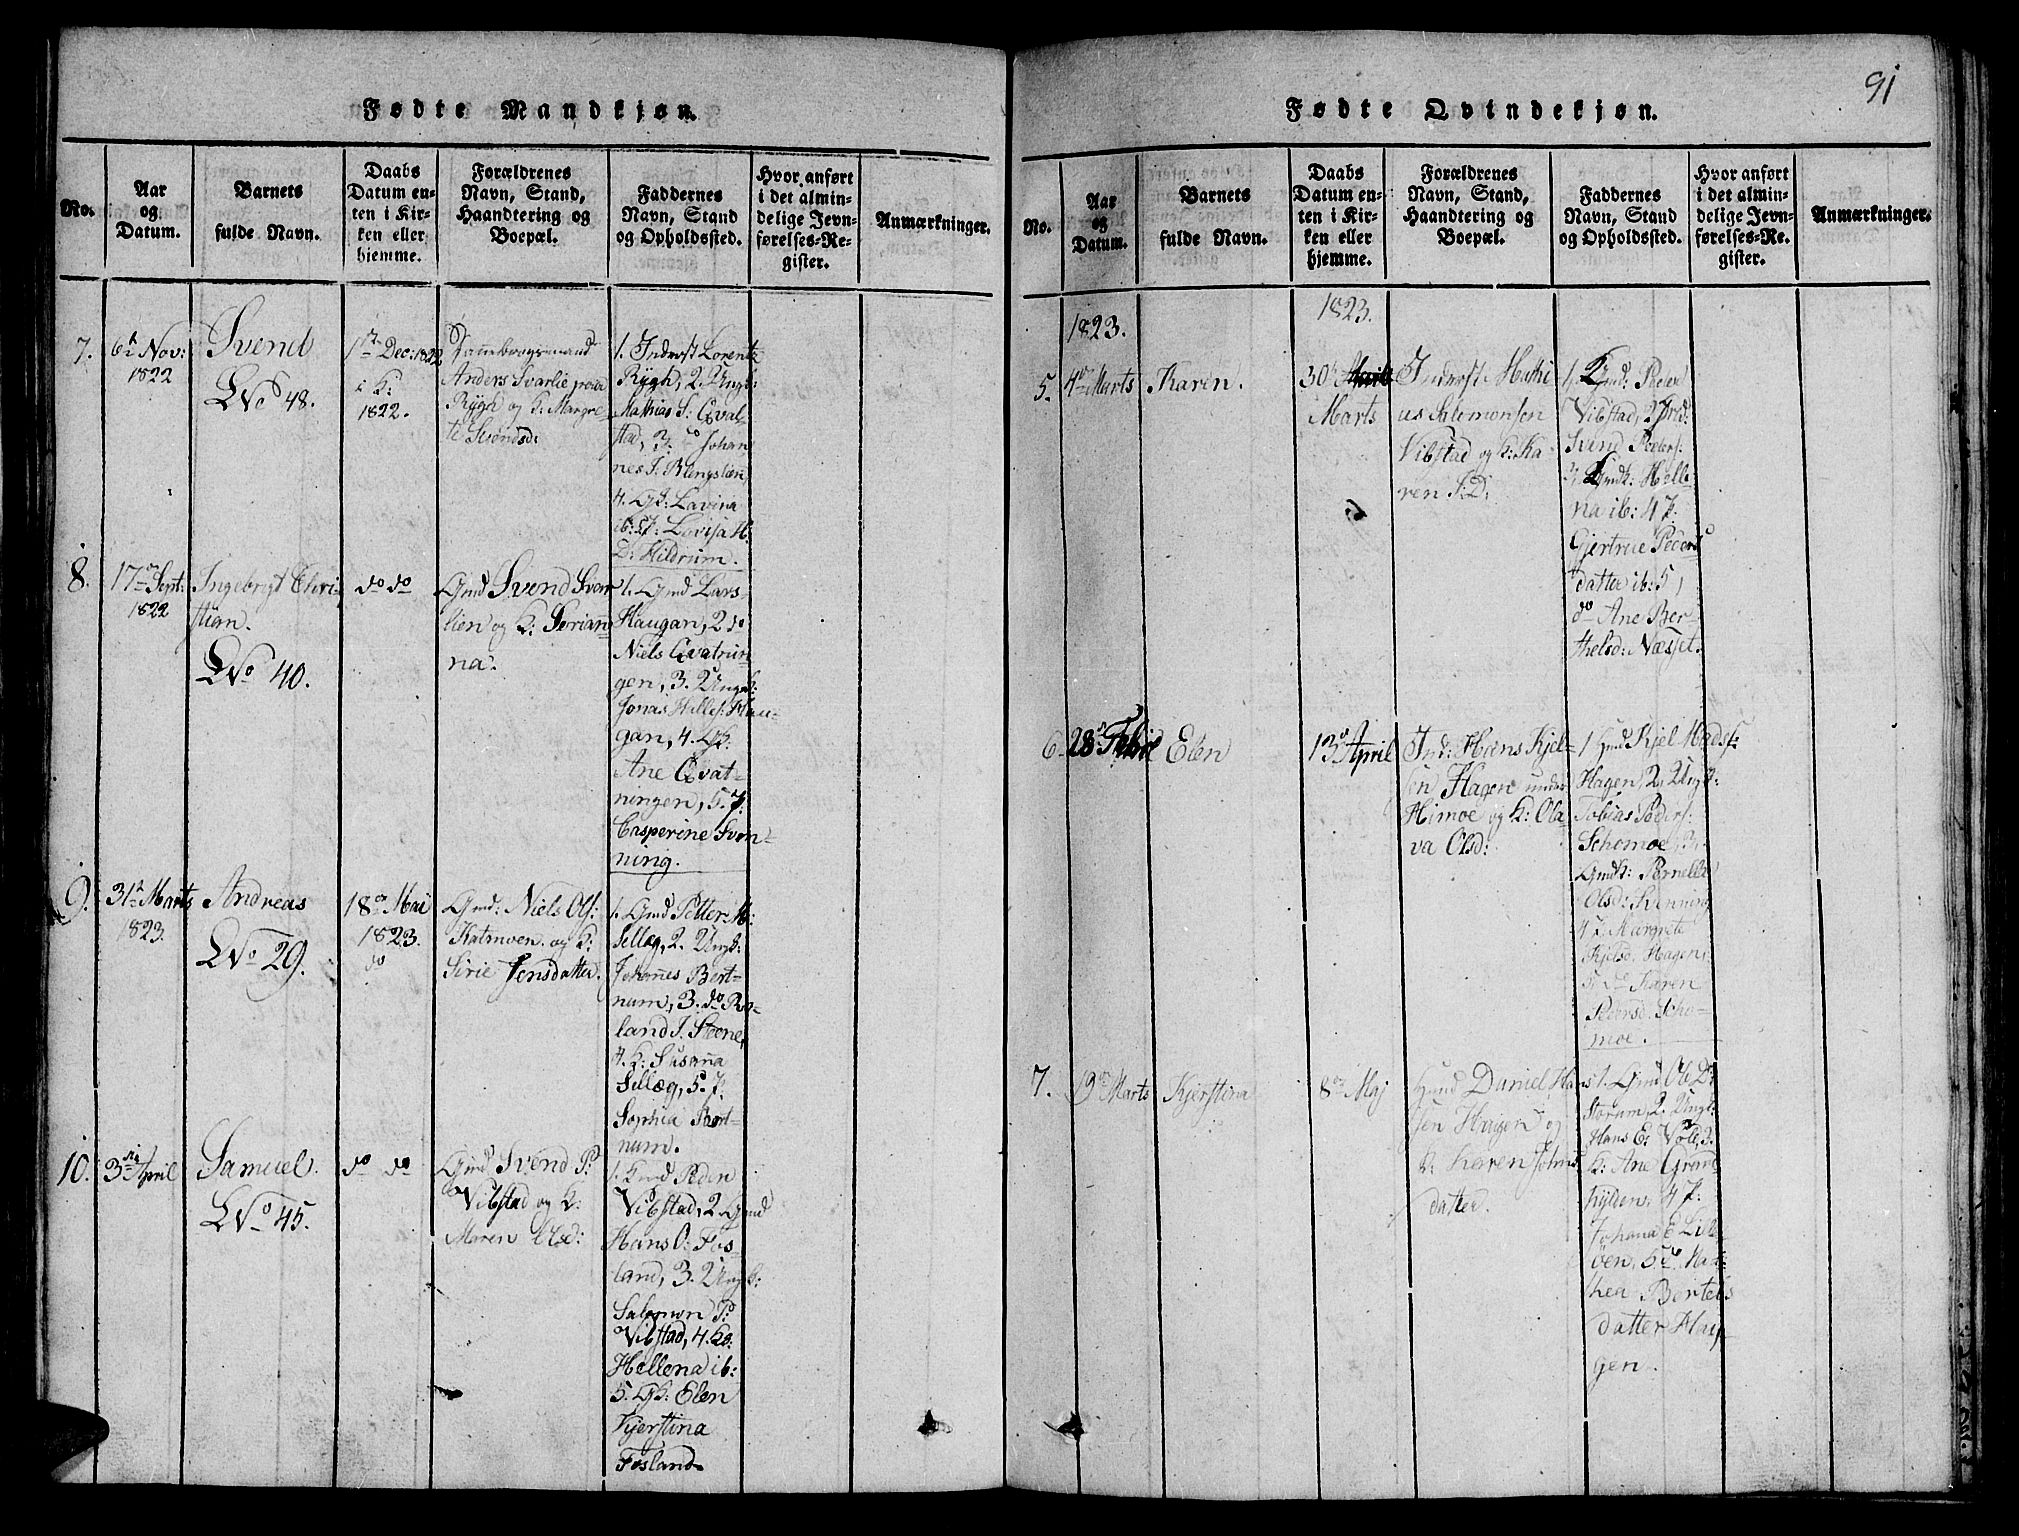 91
Fødte Mandkjøn.
No.
Aar
og
Datum.
Barnets
fulde Navn.
Daabs
Datum en-
ten i Kir-
ken eller
hjemme.
Forældrenes
Navn, Stand,
Haandtering og
Boepæl.
Faddernes
Navn, Stand
og Opholdssted.
Hvor anført
i det almin-
delige Jevn-
førelses-Re-
gister.
Anmærkninger.
7.
6t Nov:
1822
Svend
LNo 48.
1t Dec: 1822
i K:
1822.
Dannebrogsmand
Anders Svarlie paa
Rygh og K: Margre
te
1. Inderst Lorentz
Rygh, 2. Ungk:
Mathias S: Qval-
stad, 3: do Johan
nes J:
4. GK: Lavina
ib: 5 P: Lovisa H:
D: Hildrum.
8.
17de Sept:
1822
Ingebrigt Chri-
stian.
LNo 40.
do do
Gmd Svend Svar
lien og K: Serian-
na.
1. Gmd Lars
Haugan, 2 do
Niels Qvatnin
gen, 3. Ungk:
Jonas Hilles: Hau-
gan, 4. GK:
Ane Qvat-
ningen, 5. P.
Casperine Svon-
ning.
9.
31t Marts
1823.
Andreas
LNo 29.
18de Mai
1823.
do
Gmd: Niels Ols:
Katmoen og K:
Sirie Jensdatter.
1. Gmd Petter M:
Sellæg, 2. Ungk:
Johanes Bert-
num, 3. do Ro-
land J. Steene,
4. K: Susanna
Sellæg, 5. P.
Sophia Bert-
num.
10.
3die April
Samuel.
LNo 45.
do do
Gmd Svend P:
Vibstad og K:
Maren Olsd:
1. Gmd Peder
Vibstad, 2 Gmd
Hans O: Fos-
land, 3. Ungk:
Salomon P:
Vibstad, 4. Ko.
Hellena ib:
5. GK: Elen
Kjerstina
Fosland.
Fødte Qvindekjøn.
No.
Aar
og
Datum.
Barnets
fulde Navn.
Daabs
Datum en-
ten i Kir-
ken eller
hjemme.
Forældrenes
Navn, Stand,
Haandtering og
Boepæl.
Faddernes
Navn, Stand
og Opholdssted.
Hvor anført
i det almin-
delige Jevn-
førelses-Re-
gister.
Anmærkninger.
1823.
1823.
5.
4de Marts
Karen.
30t
Marts
Inderste Mathi
as Salemonsen
Vibstad og K: Ka-
ren S: D:
1. Gmd: Peder
Vibstad, 2
Svend Peders:
3, Gmdk: Helle
na ib: 4 P.
Gjertrue Peders
datter ib: 5,
do Ane Ber-
thelsd: Næsset.
6.
28de Febr
Elen
13de April
Ind: Hans Kjel-
sen Hagen under
Himoe og K: Ola-
va Olsd:
1 Gmd Kjel Madss:
Hagen, 2, Ungk:
Tobias Peders:
Schomoe, 3.
Gmdk: Pernelle
Olsd: Svenning
4 P. Margrete
Kjelsd. Hagen,
5 de Karen
Pedersd. Scho-
moe.
7.
19de Marts
Kjerstina
8de Maj
Gmd Daniel Han
sen Hagen og
K: Karen Johns
datter.
1. Gmd Ole D:
Storum, 2. Ungk:
Hans E: Vold, 3.
K: Ane Grøn
hylden, 4 P:
Johana E Lill
øen, 5 de Mat
hea Bertels
datter Hau-
gen.